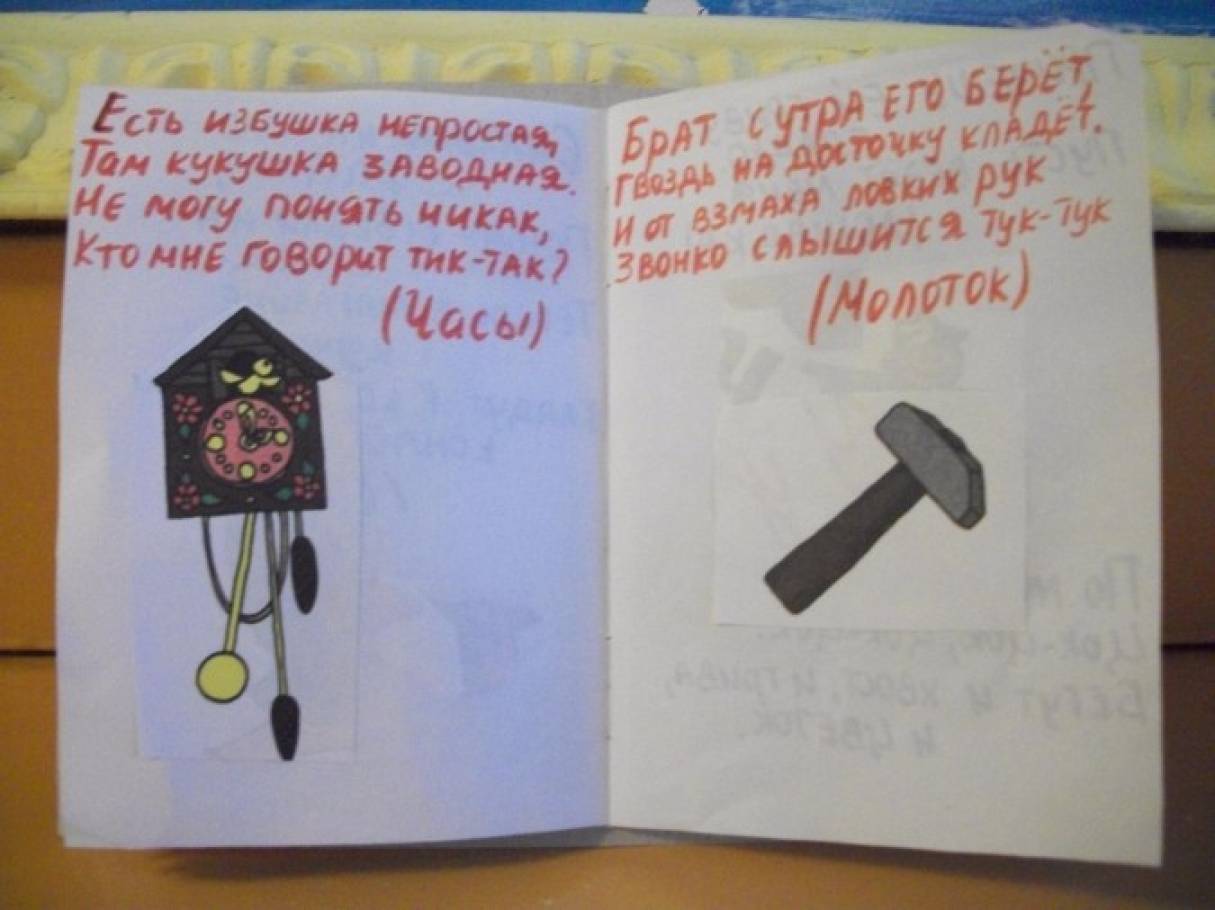 Есть избушка непростая,
Там кукушка заводная.
Не могу понять никак,
Кто мне говорит тик-так?
(Часы)
Брат с утра его берёт,
гвоздь на досточку кладёт.
И от взмаха ловких рук
Звонко слышится тук-тук
(Молоток)
Цок-цок, цок-цок.
Бегут и хвост, и грива,
и цветок.